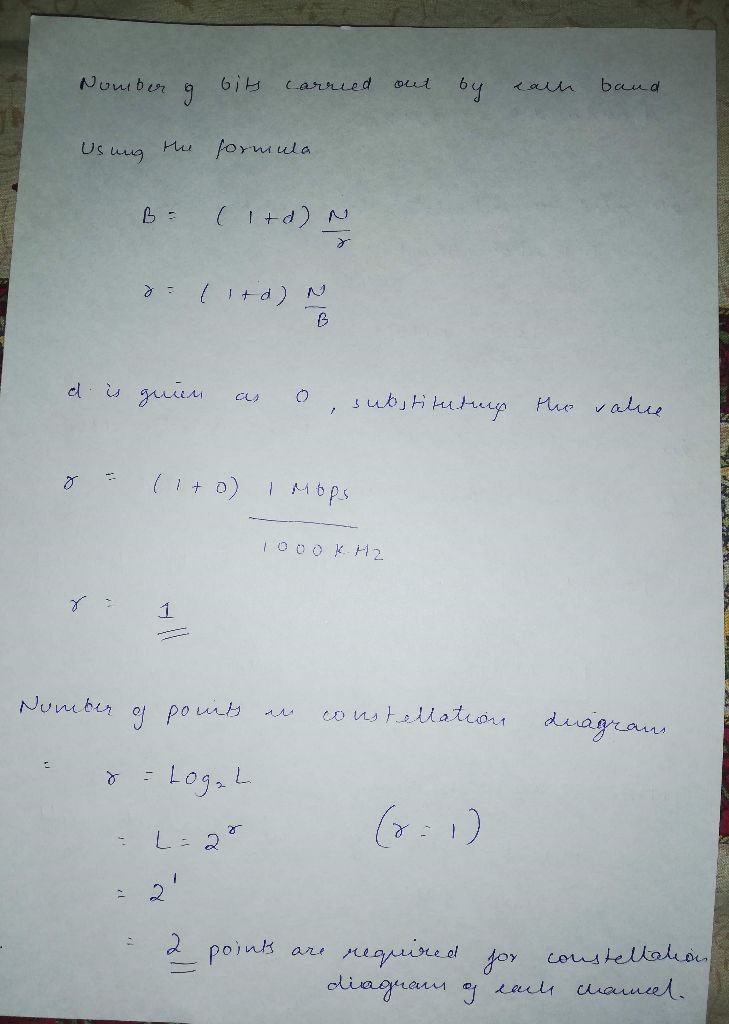 Number of bits carried out by each baud
Using the formula
B = (1+d) N/r
r = (1+d) N/B
d is given as 0, substituting the value
r = (1+0) 1 Mbps / 1000 KHz
r = 1
Number of points in constellation diagram
= r = Log₂ L
= L = 2^r (r = 1)
= 2^1
= 2 points are required for constellation
diagram of each channel.